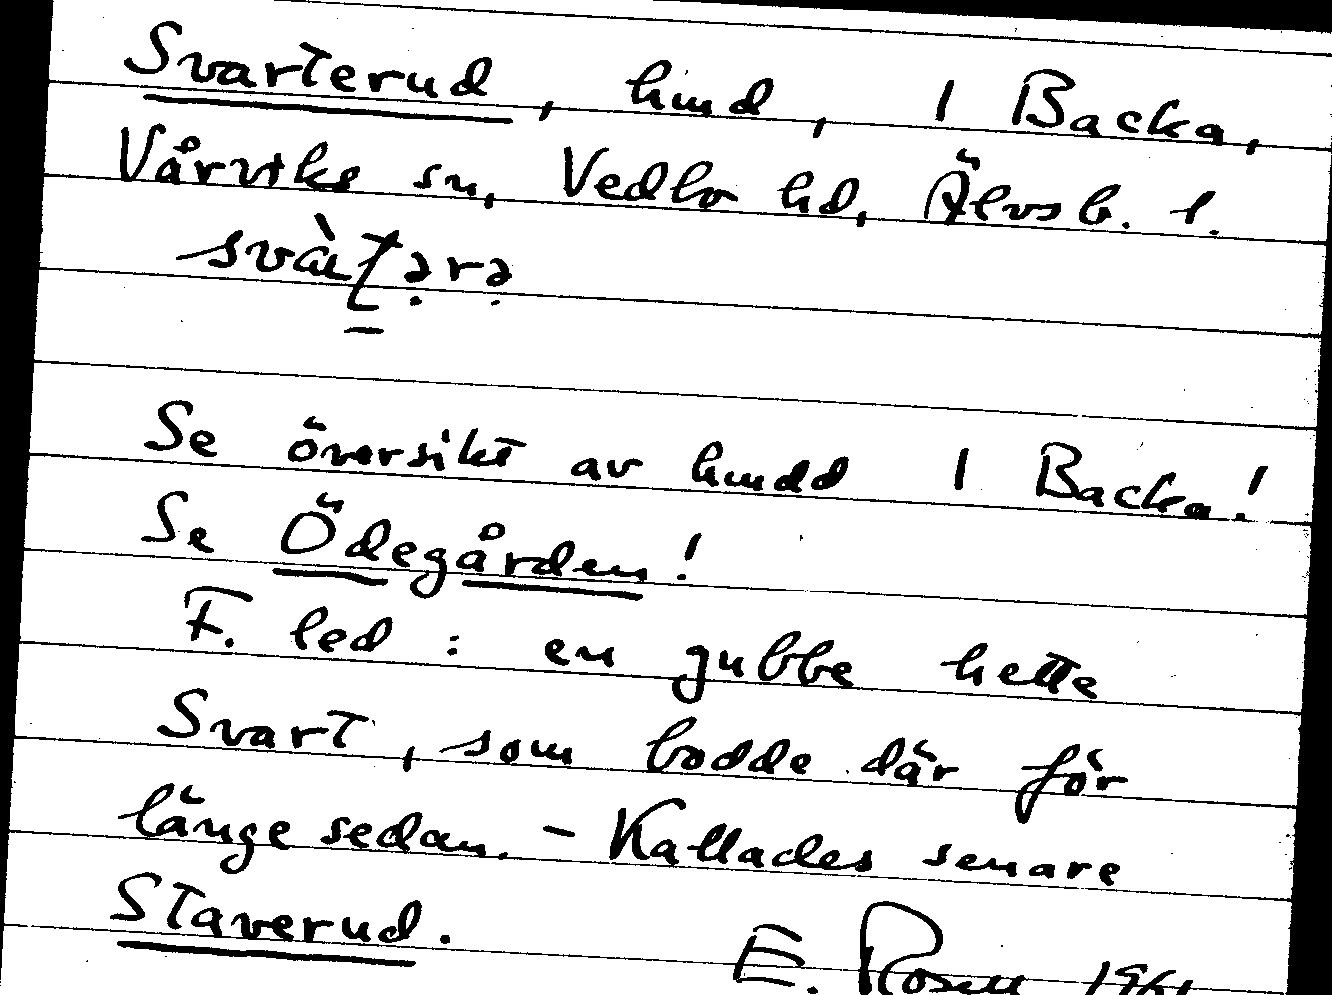 Svarterud, hmd, i Backa,
Vårviks sn, Vedbo hd, Älvsb. l.
Se översikt av hmdd i Backa!
Se Ödegården!
F. led: en gubbe hette
Svart, som bodde där för
länge sedan. - Kallades senare
Staverud.
E. Rosell 1961